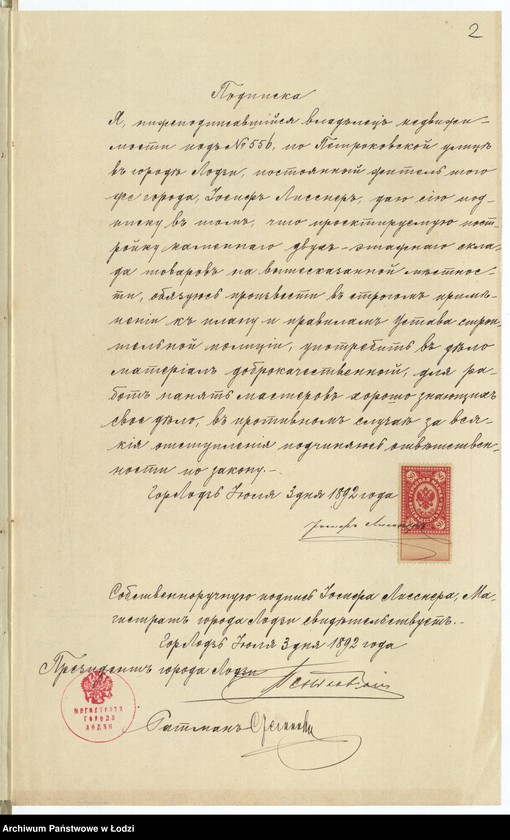 2
Подписка
Я, нижеподписавшійся владѣлецъ недвижи-
мости подъ № 556, по Петроковской улицѣ
въ городѣ Лодзи, постоянный житель того
же города, Іосифъ Лисснеръ, даю сію под-
писку въ томъ, что проектируемую пост-
ройку каменнаго двухъ-этажнаго скла-
да товаровъ на вышесказанной мѣстнос-
ти, обязуюсь произвести въ строгомъ примѣ-
неніи къ плану и правиламъ Устава строи-
тельной полиціи, употребить въ дѣло
матеріалъ доброкачественный, для ра-
ботъ нанять мастеровъ хорошо знающихъ
свое дѣло, въ противномъ случаѣ за вся-
кія отступленія подчиняюсь отвѣтствен-
ности по закону.-
Гор. Лодзь Іюля 3 дня 1892 года
Іосифъ Лисснеръ
Собственноручную подпись Іосифа Лисснера, Ма-
гистратъ города Лодзи свидѣтельствуетъ.-
Гор. Лодзь Іюля 3 дня 1892 года
Президентъ города Лодзи
МАГИСТРАТЪ
ГОРОДА
ЛОДЗИ
Ратманъ
Archiwum Państwowe w Łodzi